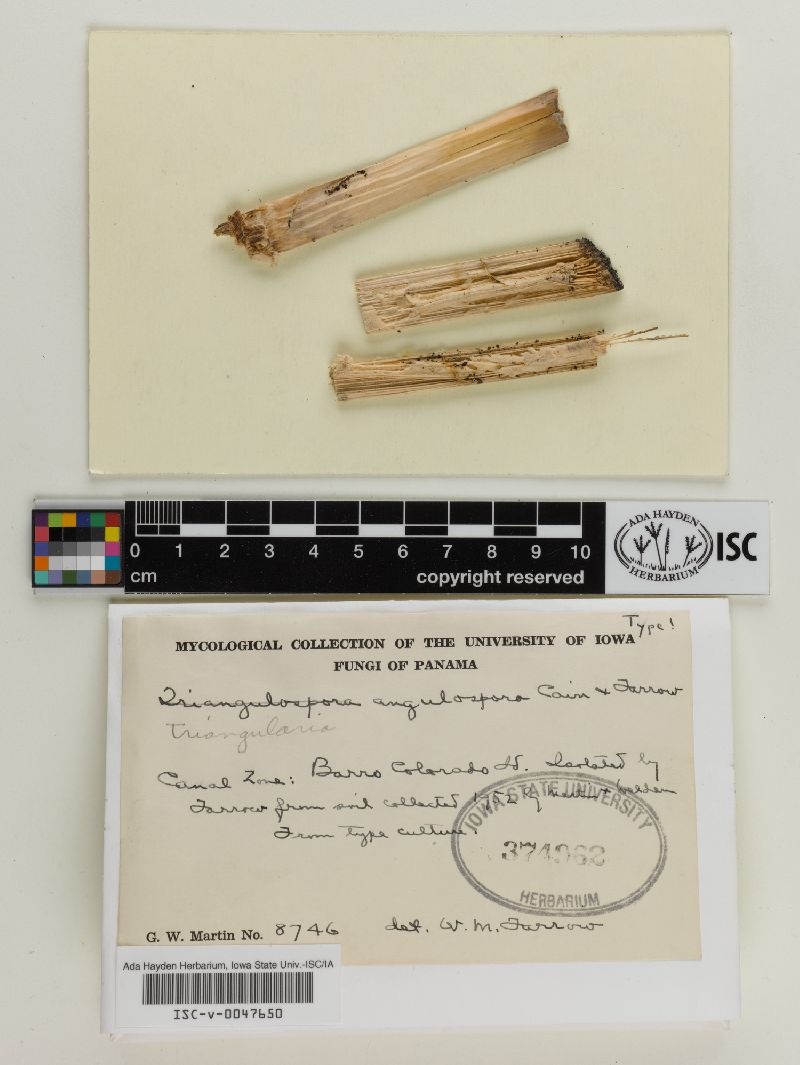 0 1 2 3 4 5 6 7 8 9 10
cm
copyright reserved
ADA HAYDEN
HERBARIUM
ISC
Type!
MYCOLOGICAL COLLECTION OF THE UNIVERSITY OF IOWA
FUNGI OF PANAMA
Triangulospora angulospora Cain & Farrow
Triangularia
Canal Zone: Barro Colorado Id. Isolated by
Farrow from soil collected 1952 by Martin & Welden
From type culture.
IOWA STATE UNIVERSITY
374962
HERBARIUM
G. W. Martin No. 8746 det. W. M. Farrow
Ada Hayden Herbarium, Iowa State Univ.-ISC/IA
ISC-v-0047650